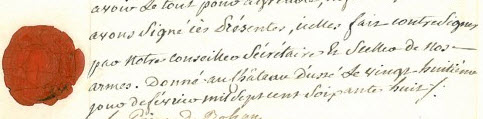 avoir le tout pour agréable, 
avons Signé ces Présentes, icelles fait contresigner
par Notre conseiller Sécrétaire Et Scellée de Nos
armes. Donné au château d'ussé Le vingt huitième
jour de février mil Sept cent Soixante huit /.
de Rohan